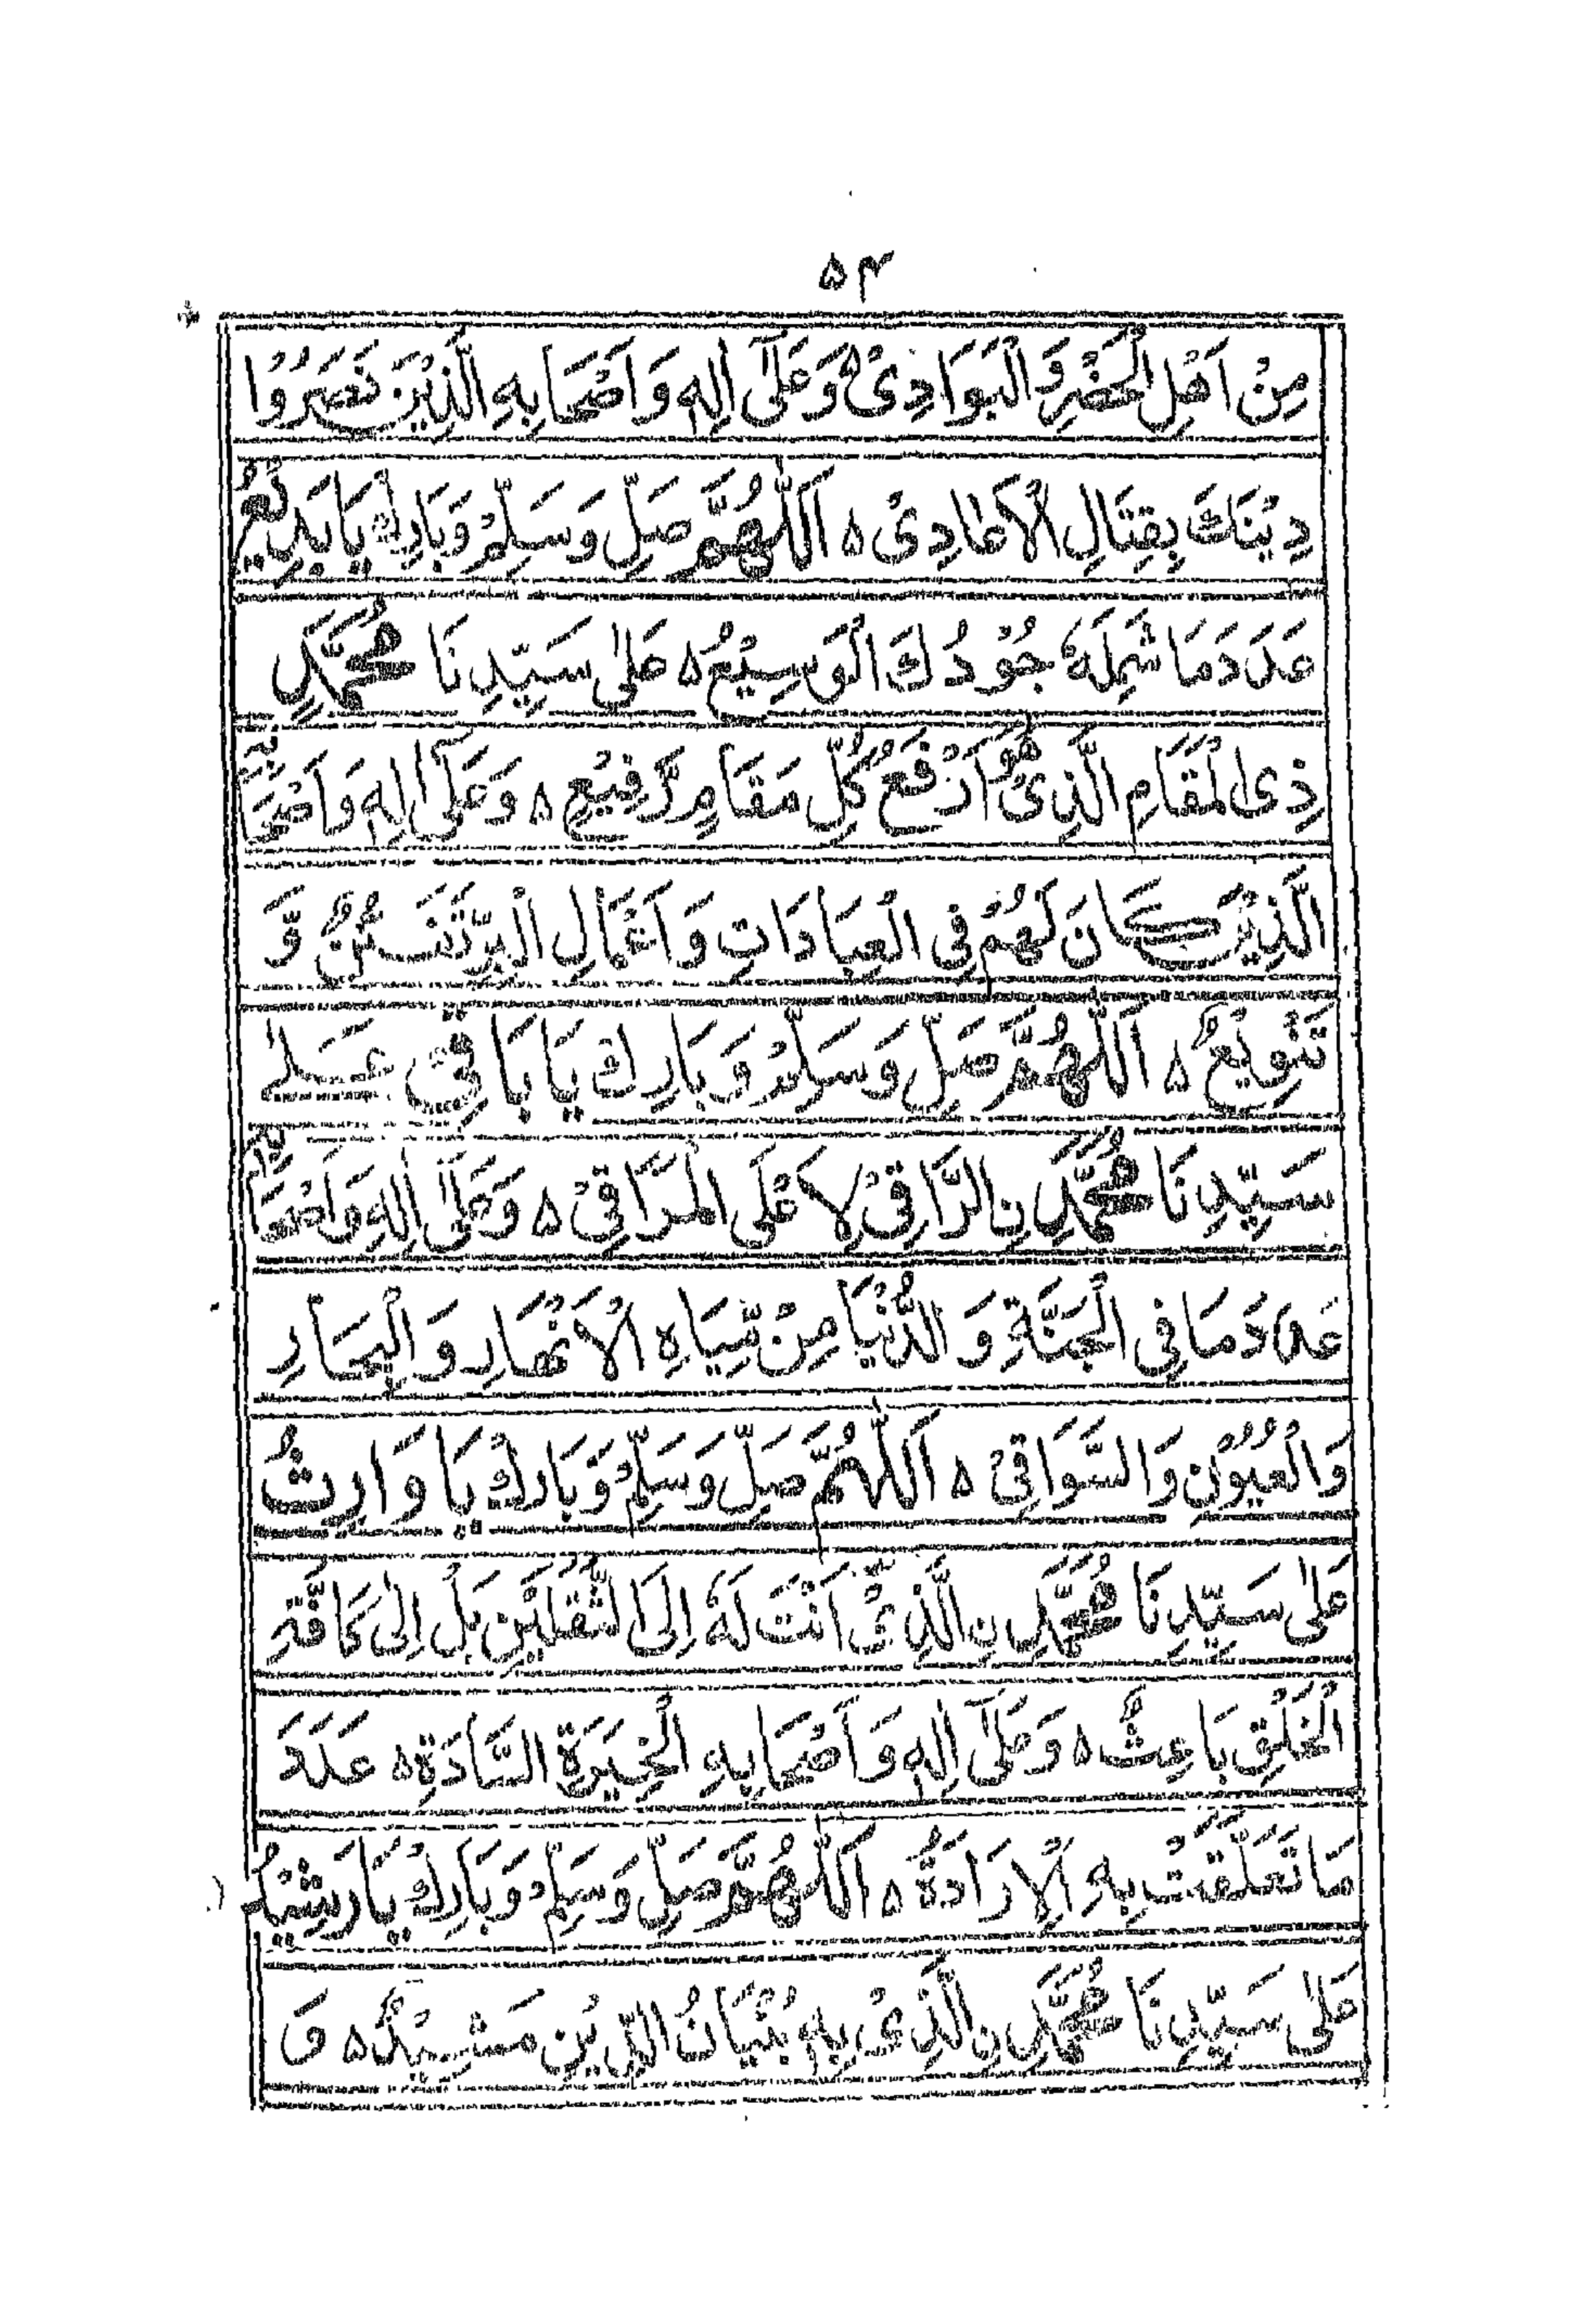 ۵۴
مِنْ اَهْلِ الْحَضْرِ وَ الْبَوَادِیْ ۵ وَعَلٰٓی اٰلِهٖ وَاَصْحَابِهِ الَّذِیْنَ نَصَرُوْا
دِیْنَكَ بِقِتَالِ الْاَعَادِیْ ۵ اَللّٰهُمَّ صَلِّ وَسَلِّمْ وَبَارِكْ یَا بَدِیْعُ
عَدَدَ مَا شَمِلَهٗ جُوْدُكَ الْوَسِیْعُ ۵ عَلٰی سَیِّدِنَا مُحَمَّدٍ
ذِی الْمَقَامِ الَّذِیْ هُوَ اَرْفَعُ كُلِّ مَقَامٍ رَّفِیْعٍ ۵ وَعَلٰٓی اٰلِهٖ وَاَصْحَابِهِ
الَّذِیْنَ كَانَ لَهُمْ فِی الْعِبَادَاتِ وَاَعْمَالِ الْبِرِّ تَفَنُّنٌ وَّ
تَنْوِیْعٌ ۵ اَللّٰهُمَّ صَلِّ وَسَلِّمْ وَبَارِكْ یَا بَاقِیْ عَلٰی
سَیِّدِنَا مُحَمَّدِ نِ الرَّاقِیْ لِاَعْلَی الْمَرَاقِیْ ۵ وَعَلٰٓی اٰلِهٖ وَاَصْحَابِهٖ
عَدَدَ مَا فِی الْجَنَّةِ وَ الدُّنْیَا مِنْ مِّیَاهِ الْاَنْهَارِ وَ الْبِحَارِ
وَالْعُیُوْنِ وَالسَّوَاقِیْ ۵ اَللّٰهُمَّ صَلِّ وَسَلِّمْ وَبَارِكْ یَا وَارِثُ
عَلٰی سَیِّدِنَا مُحَمَّدِ نِ الَّذِیْ اَنْتَ لَهٗ اِلَی الثَّقَلَیْنِ بَلْ اِلٰی كَافَّةِ
الْخَلْقِ بَاعِثٌ ۵ وَعَلٰٓی اٰلِهٖ وَاَصْحَابِهِ الْخِیَرَةِ السَّادَةِ ۵ عَدَدَ
مَا تَعَلَّقَتْ بِهِ الْاِرَادَةُ ۵ اَللّٰهُمَّ صَلِّ وَسَلِّمْ وَبَارِكْ یَا رَشِیْدُ
عَلٰی سَیِّدِنَا مُحَمَّدِ نِ الَّذِیْ بِهٖ بُنْیَانُ الدِّیْنِ مَشِیْدٌ ۵ وَ